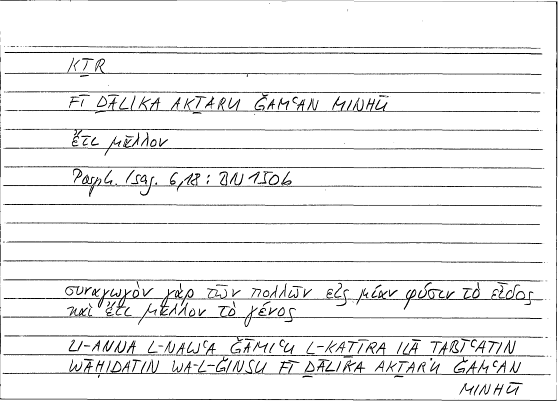 KṮR
FĪ ḎĀLIKA AKṮARU ǦAMʿAN MINHŪ
ἔτι μᾶλλον
Porph. Isag. 6,18 : BN 150b
συναγωγὸν γὰρ τῶν πολλῶν εἰς μίαν φύσιν τὸ εἶδος
καὶ ἔτι μᾶλλον τὸ γένος
LI-ANNA L-NAWʿA ǦĀMIʿU L-KAṮĪRA ILĀ TABĪʿATIN
WĀḤIDATIN WA-L-ǦINSU FĪ ḎĀLIKA AKṮARU ǦAMʿAN
MINHŪ